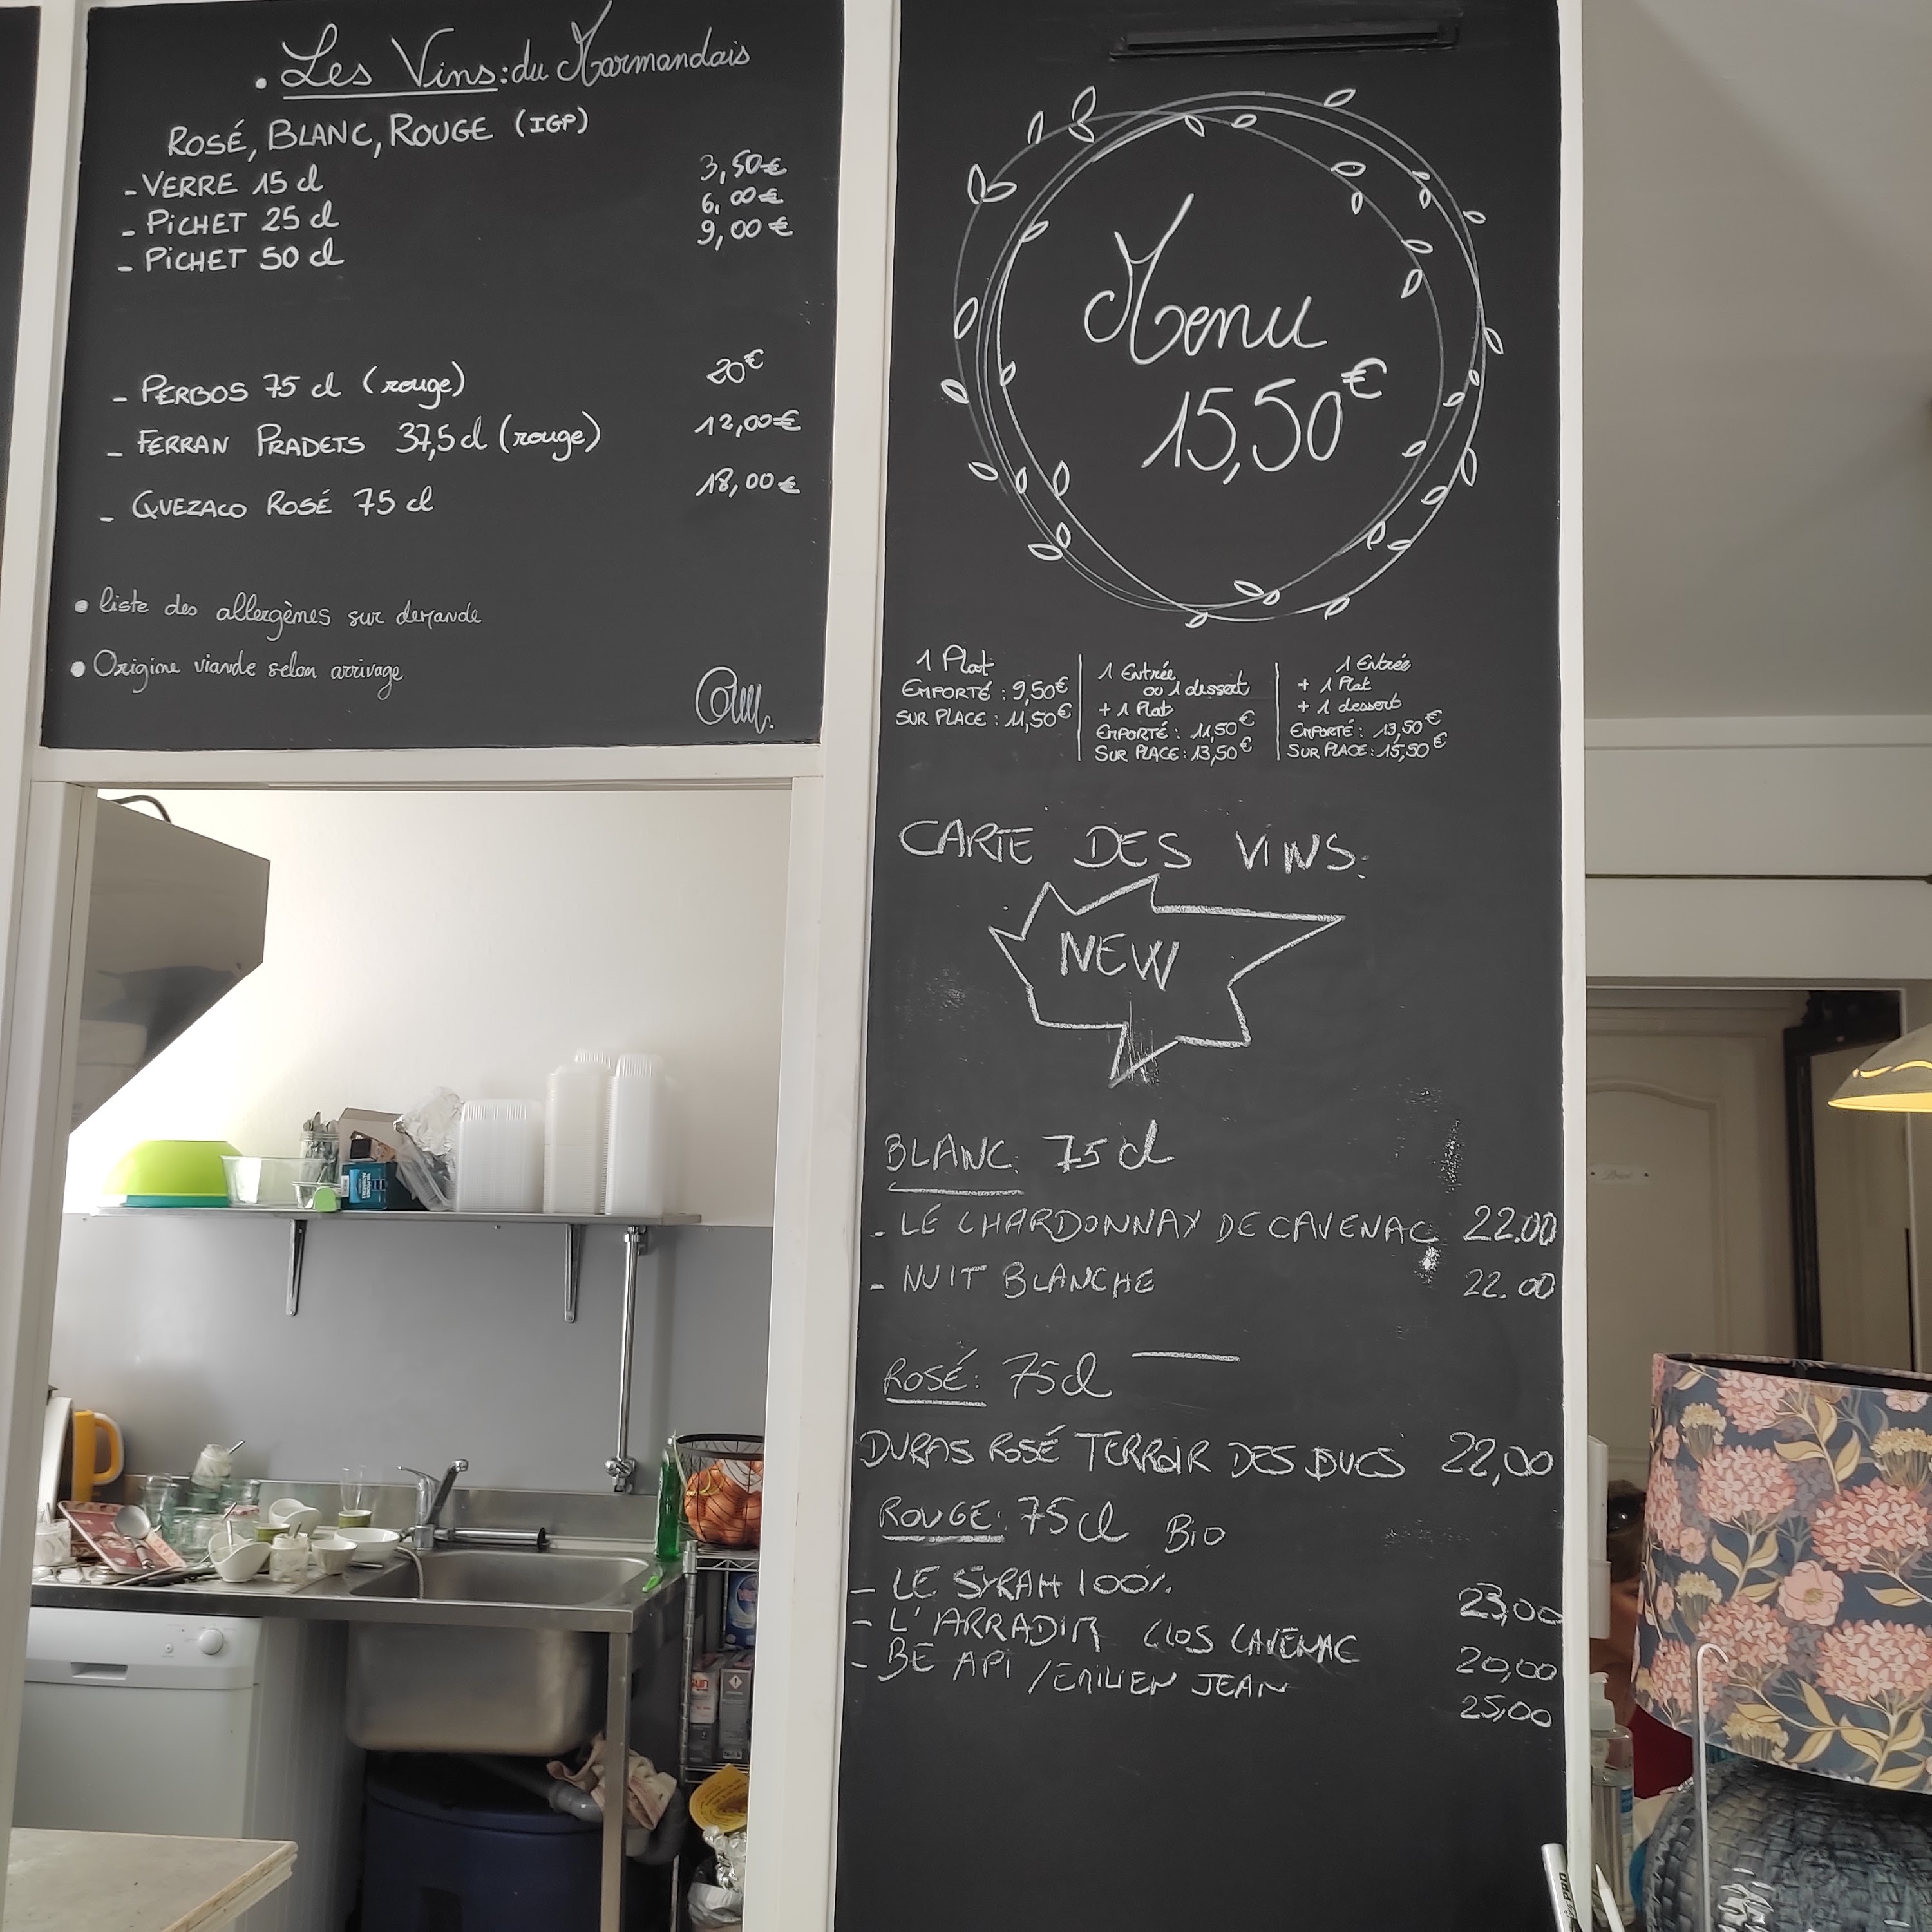 . Les Vins: du Marmandais
ROSÉ, BLANC, ROUGE (IGP)
- VERRE 15 cl 3,50€
- PICHET 25 cl 6,00€
- PICHET 50 cl 9,00€
- PERBOS 75 cl (rouge) 20€
- FERRAN PRADETS 37,5 cl (rouge) 12,00€
- QUEZACO ROSÉ 75 cl 18,00€
• liste des allergènes sur demande
• Origine viande selon arrivage
Menu
15,50€
1 Plat
EMPORTÉ : 9,50€
SUR PLACE : 11,50€
1 Entrée
ou 1 dessert
+ 1 Plat
EMPORTÉ : 11,50€
SUR PLACE : 13,50€
1 Entrée
+ 1 Plat
+ 1 dessert
EMPORTÉ : 13,50€
SUR PLACE : 15,50€
CARTE DES VINS:
NEW
BLANC: 75 cl
- LE CHARDONNAY DE CAVENAC 22.00
- NUIT BLANCHE 22.00
ROSÉ: 75cl
DURAS ROSÉ TERROIR DES DUCS 22,00
ROUGE: 75cl BIO
- LE SYRAH 100% 23,00
- L'ARRADIR CLOS CAVENAC 20,00
- BE API / EMILIEN JEAN 25,00